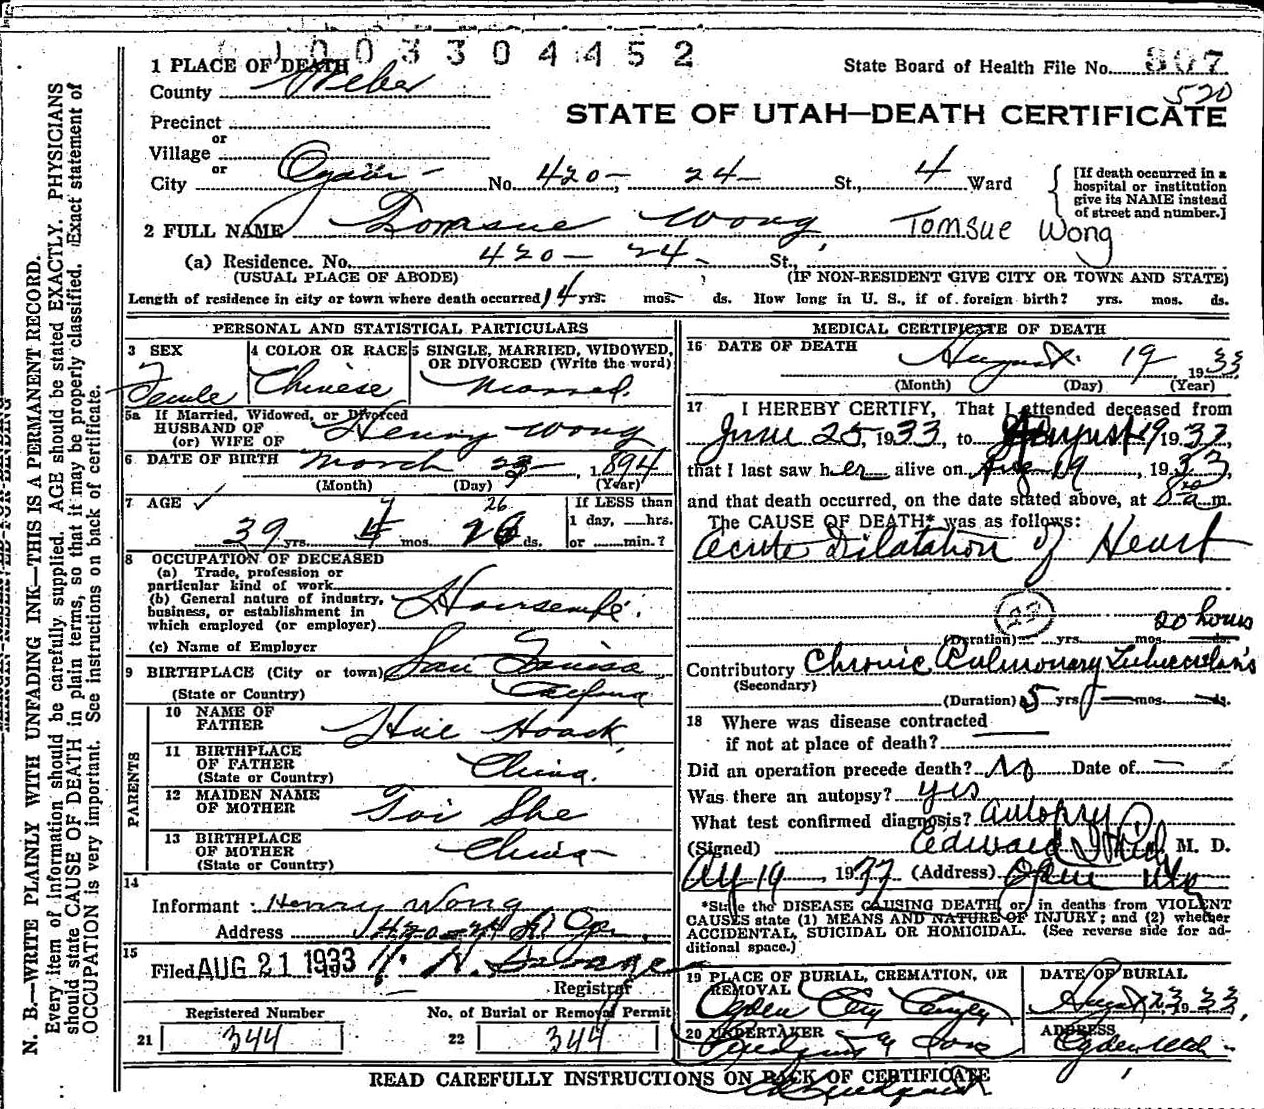 0003304452
1 PLACE OF DEATH
County Weber
State Board of Health File No. 307
520
STATE OF UTAH—DEATH CERTIFICATE
Precinct
or
Village
or
City Ogden - No. 420 - 24 - St., 4 Ward
[If death occurred in a hospital or institution give its NAME instead of street and number.]
2 FULL NAME Tomsue Wong, Tomsue Wong
(a) Residence. No. 420 - 24 - St.,
(USUAL PLACE OF ABODE) (IF NON-RESIDENT GIVE CITY OR TOWN AND STATE)
Length of residence in city or town where death occurred 14 yrs. mos. ds. How long in U. S., if of foreign birth? yrs. mos. ds.
PERSONAL AND STATISTICAL PARTICULARS
3 SEX Female
4 COLOR OR RACE Chinese
5 SINGLE, MARRIED, WIDOWED, OR DIVORCED (Write the word) Married.
5a If Married, Widowed, or Divorced
HUSBAND OF
(or) WIFE OF Henry Wong
6 DATE OF BIRTH March 23 1894
(Month) (Day) (Year)
7 AGE 39 yrs. 4 mos. 26 ds.
If LESS than
1 day, hrs.
or min.?
8 OCCUPATION OF DECEASED
(a) Trade, profession or
particular kind of work
(b) General nature of industry,
business, or establishment in
which employed (or employer) Housewife.
(c) Name of Employer
9 BIRTHPLACE (City or town) San
(State or Country)
PARENTS
10 NAME OF FATHER Hoack
11 BIRTHPLACE OF FATHER (State or Country) China.
12 MAIDEN NAME OF MOTHER Toi She
13 BIRTHPLACE OF MOTHER (State or Country) China
14
Informant Henry Wong
Address 420 - 24 St
15
Filed AUG 21 1933
Registrar
Registered Number
21 344
No. of Burial or Removal Permit
22 344
MEDICAL CERTIFICATE OF DEATH
16 DATE OF DEATH August 19 1933
(Month) (Day) (Year)
17 I HEREBY CERTIFY, That I attended deceased from
June 25, 1933, to August 19 1933,
that I last saw her alive on Aug 19, 1933,
and that death occurred, on the date stated above, at 8 a.m.
The CAUSE OF DEATH* was as follows:
Acute Dilatation of Heart
23
(Duration) yrs. mos. ds. 20 hours
Contributory Chronic Pulmonary Tuberculosis
(Secondary)
(Duration) 5 yrs. mos. ds.
18 Where was disease contracted
if not at place of death?
Did an operation precede death? No Date of
Was there an autopsy? yes
What test confirmed diagnosis? autopsy
(Signed) Edward M. D.
19 1933 (Address)
*State the DISEASE CAUSING DEATH, or in deaths from VIOLENT
CAUSES state (1) MEANS AND NATURE OF INJURY; and (2) whether
ACCIDENTAL, SUICIDAL OR HOMICIDAL. (See reverse side for ad-
ditional space.)
19 PLACE OF BURIAL, CREMATION, OR REMOVAL Ogden City
DATE OF BURIAL August 23, 1933,
20 UNDERTAKER Sons
ADDRESS Ogden Utah
READ CAREFULLY INSTRUCTIONS ON BACK OF CERTIFICATE
N. B.—WRITE PLAINLY WITH UNFADING INK—THIS IS A PERMANENT RECORD.
Every item of information should be carefully supplied. AGE should be stated EXACTLY. PHYSICIANS
should state CAUSE OF DEATH in plain terms, so that it may be properly classified. Exact statement of
OCCUPATION is very important. See instructions on back of certificate.
MARGIN RESERVED FOR BINDING